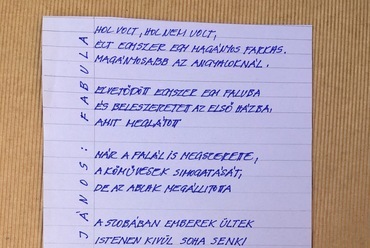 HOL VOLT, HOL NEM VOLT,
ÉLT EGYSZER EGY MAGÁNYOS FARKAS.
MAGÁNYOSABB AZ ANGYALOKNÁL.
ELVETŐDÖTT EGYSZER EGY FALUBA
ÉS BELESZERETETT AZ ELSŐ HÁZBA,
AMIT MEGLÁTOTT
MÁR A FALÁT IS MEGSZERETTE,
A KŐMŰVESEK SIMOGATÁSÁT,
DE AZ ABLAK MEGÁLLÍTOTTA
A SZOBÁBAN EMBEREK ÜLTEK
ISTENEN KIVÜL SOHA SENKI
JÁNOS: FABULA